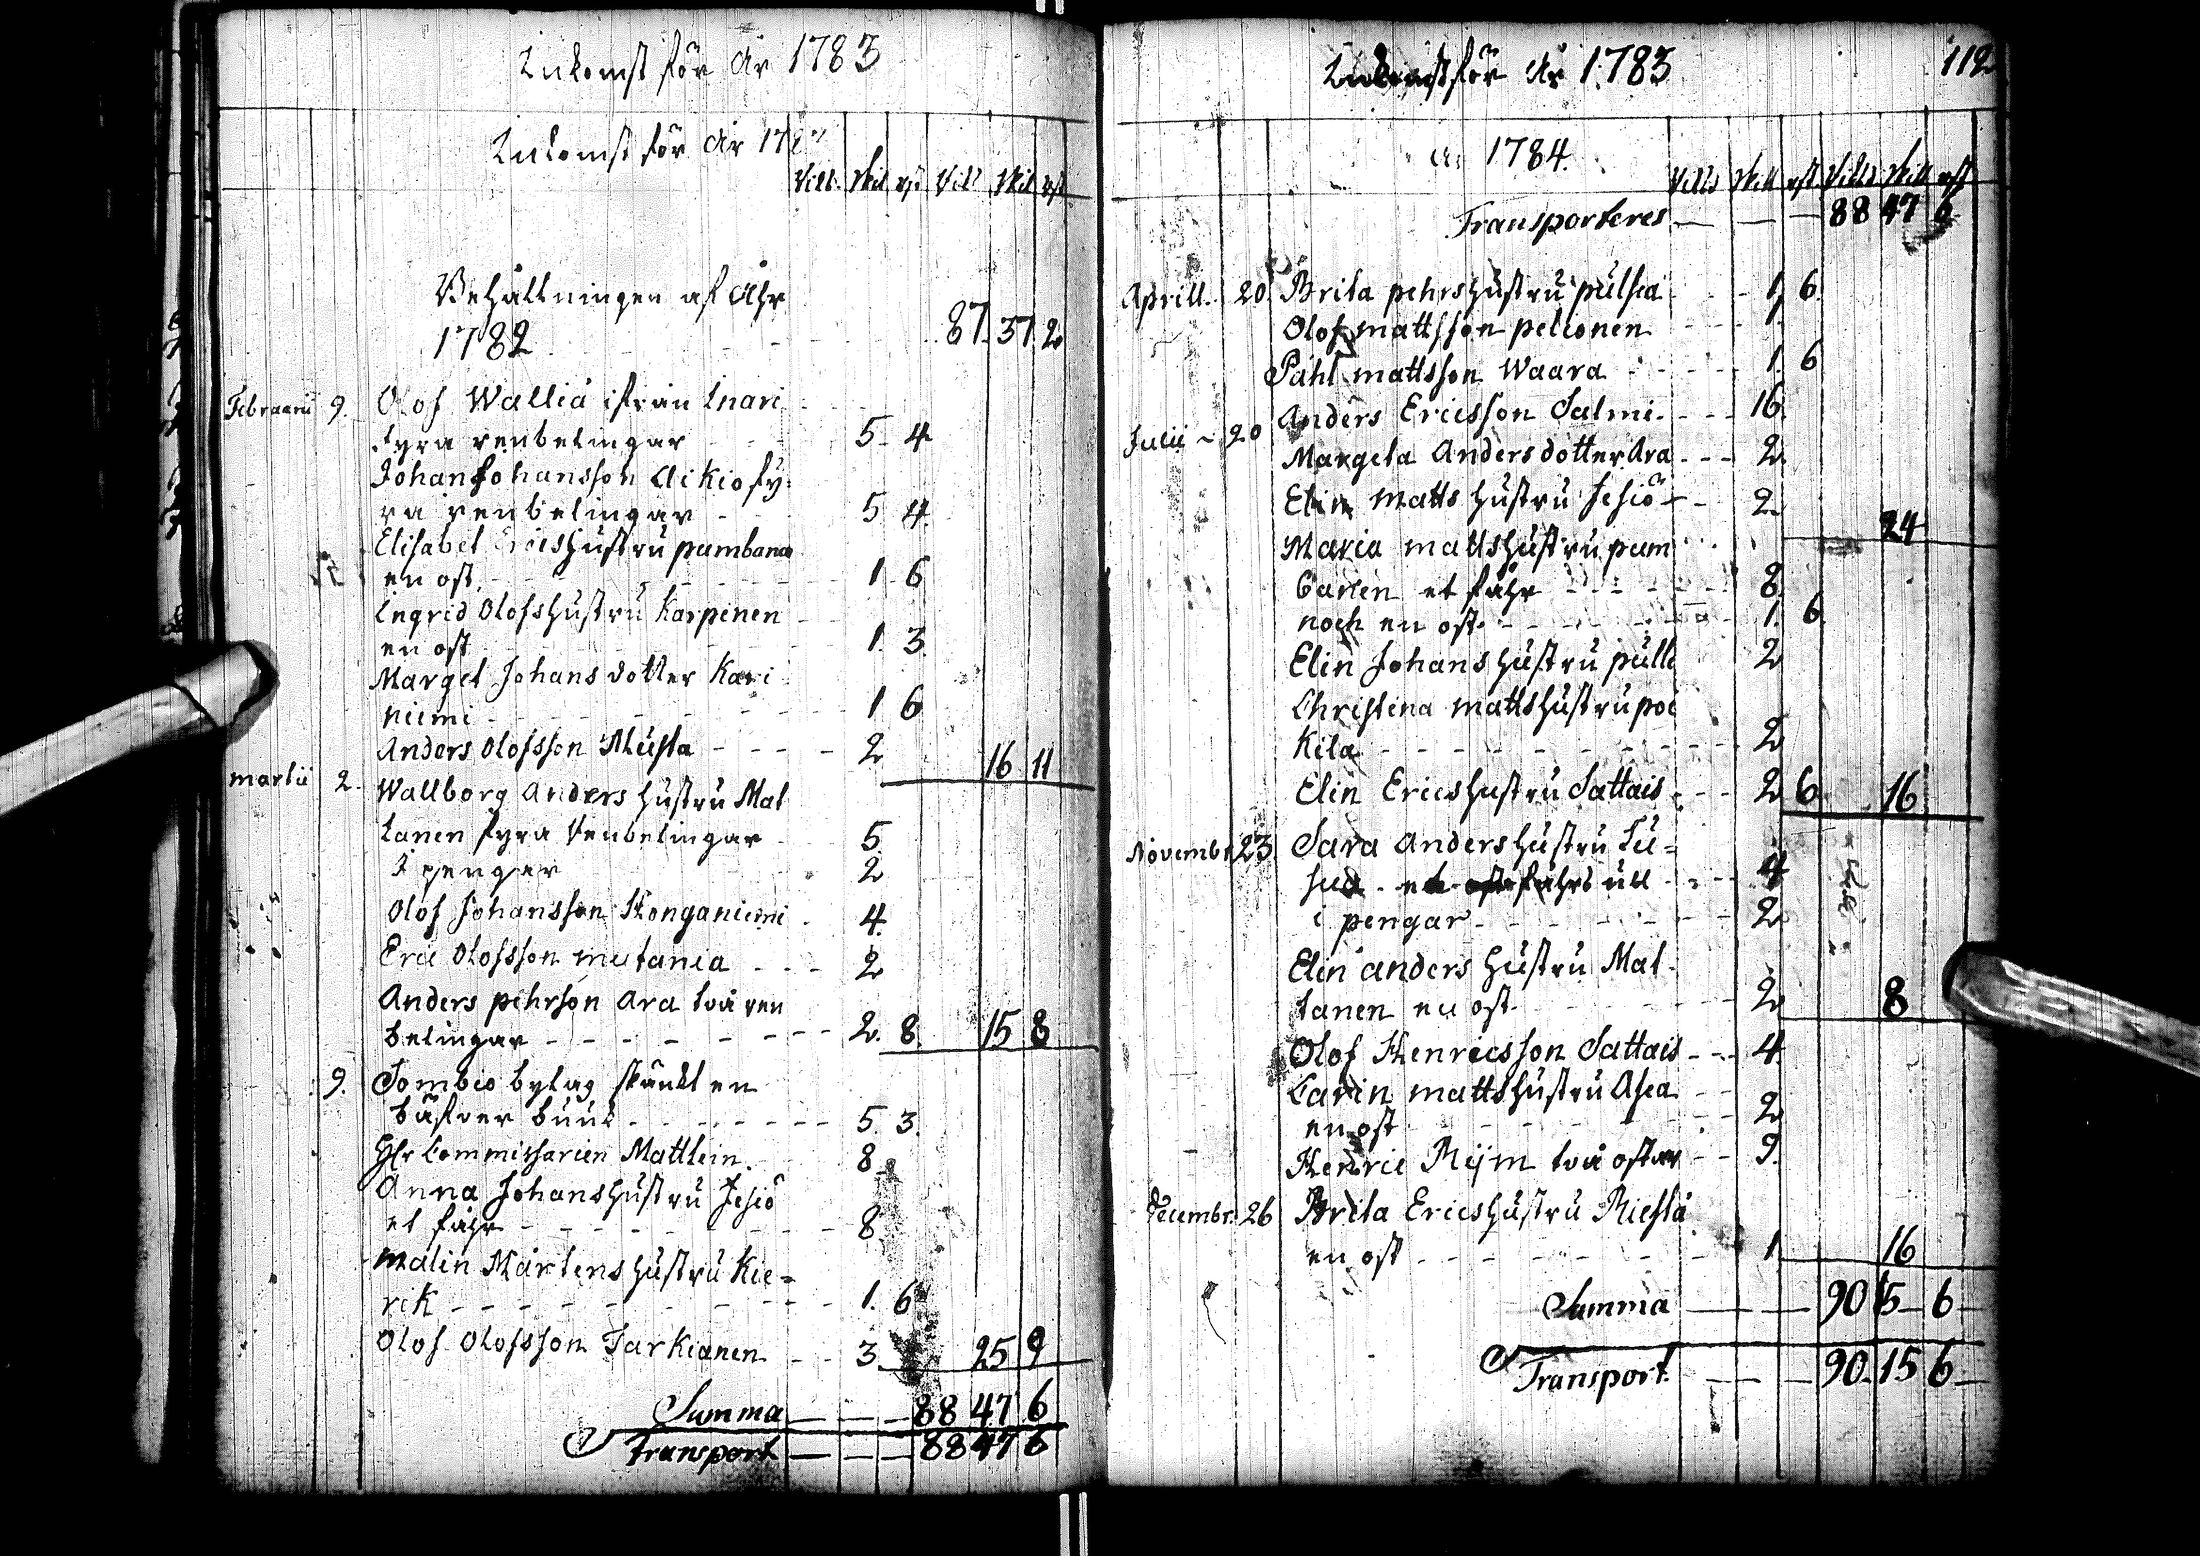 Inkomst för År 1783
Inkomst för År 178
Rikld. Skil rst Rikl Skil rst
Behållningen af Åhr
1782 87. 37. 2
Februarii 9. Olof Wallia ifrån Enari
fyra renbelingar 5 4
Johan Johansson Aikio fy-
ra renbelingar 5 4
Elisabet Erics hustru pumbana
en ost 1 6
Ingrid Olofs hustru Karpinen
en ost 1 3
Marget Johans dotter Kari
niemi 1 6
Anders Olofsson Musta 2 16 11
martii 2. Wallborg Anders hustru Mat
tanen fyra Renbelingar 5
I pengar 2
Olof Johansson Konganiemi 4
Eric Olofsson mutania 2
Anders pehrson Ara två ren
belingar 2. 8. 15 8
9. Sombio bylag skänkt en
bäfver 5. 3.
Hr Commissarien Matthein 8
Anna Johans hustru Jesiö
et fåhr 8
Malin Mårtens hustru Kie=
rik 1. 6
Olof Olofsson Tarkianen 3 25 9
Summa 88 47 6
Transport 88 47 6
Inkomst för År 1783 112
År 1784.
Rikld Skill rst Rikld Skill rst
Transporteres 88 47 6
Aprill. 20. Brita pehrs hustru pulsca 1 6
Olof mattsson peltonen 1
Påhl mattsson Waara 1. 6
Anders Ericsson Salmi 16
Julii 20 Margeta Anders dotter Ara 2
Elin matts hustru Jesiö 2 24
Maria matts hustru pum
banen et fåhr 8
noch en ost 1. 6
Elin Johans hustru pulk 2
Christina matts hustru poi
kila 2
Elin Erics hustru Sattais 2 6 16
Novembr 23. Sara Anders hustru
fåhrs ull 4
i pengar 2
Elin anders hustru Mat-
tanen en ost 2 8
Olof Henricsson Sattais 4
Carin matts hustru Asca
en ost 2
Henric Rijm två ostar 9.
Decembr. 26 Brita Erics hustru Riesta
en ost 1 16
Summa 90 15 6
Transport 90. 15 6